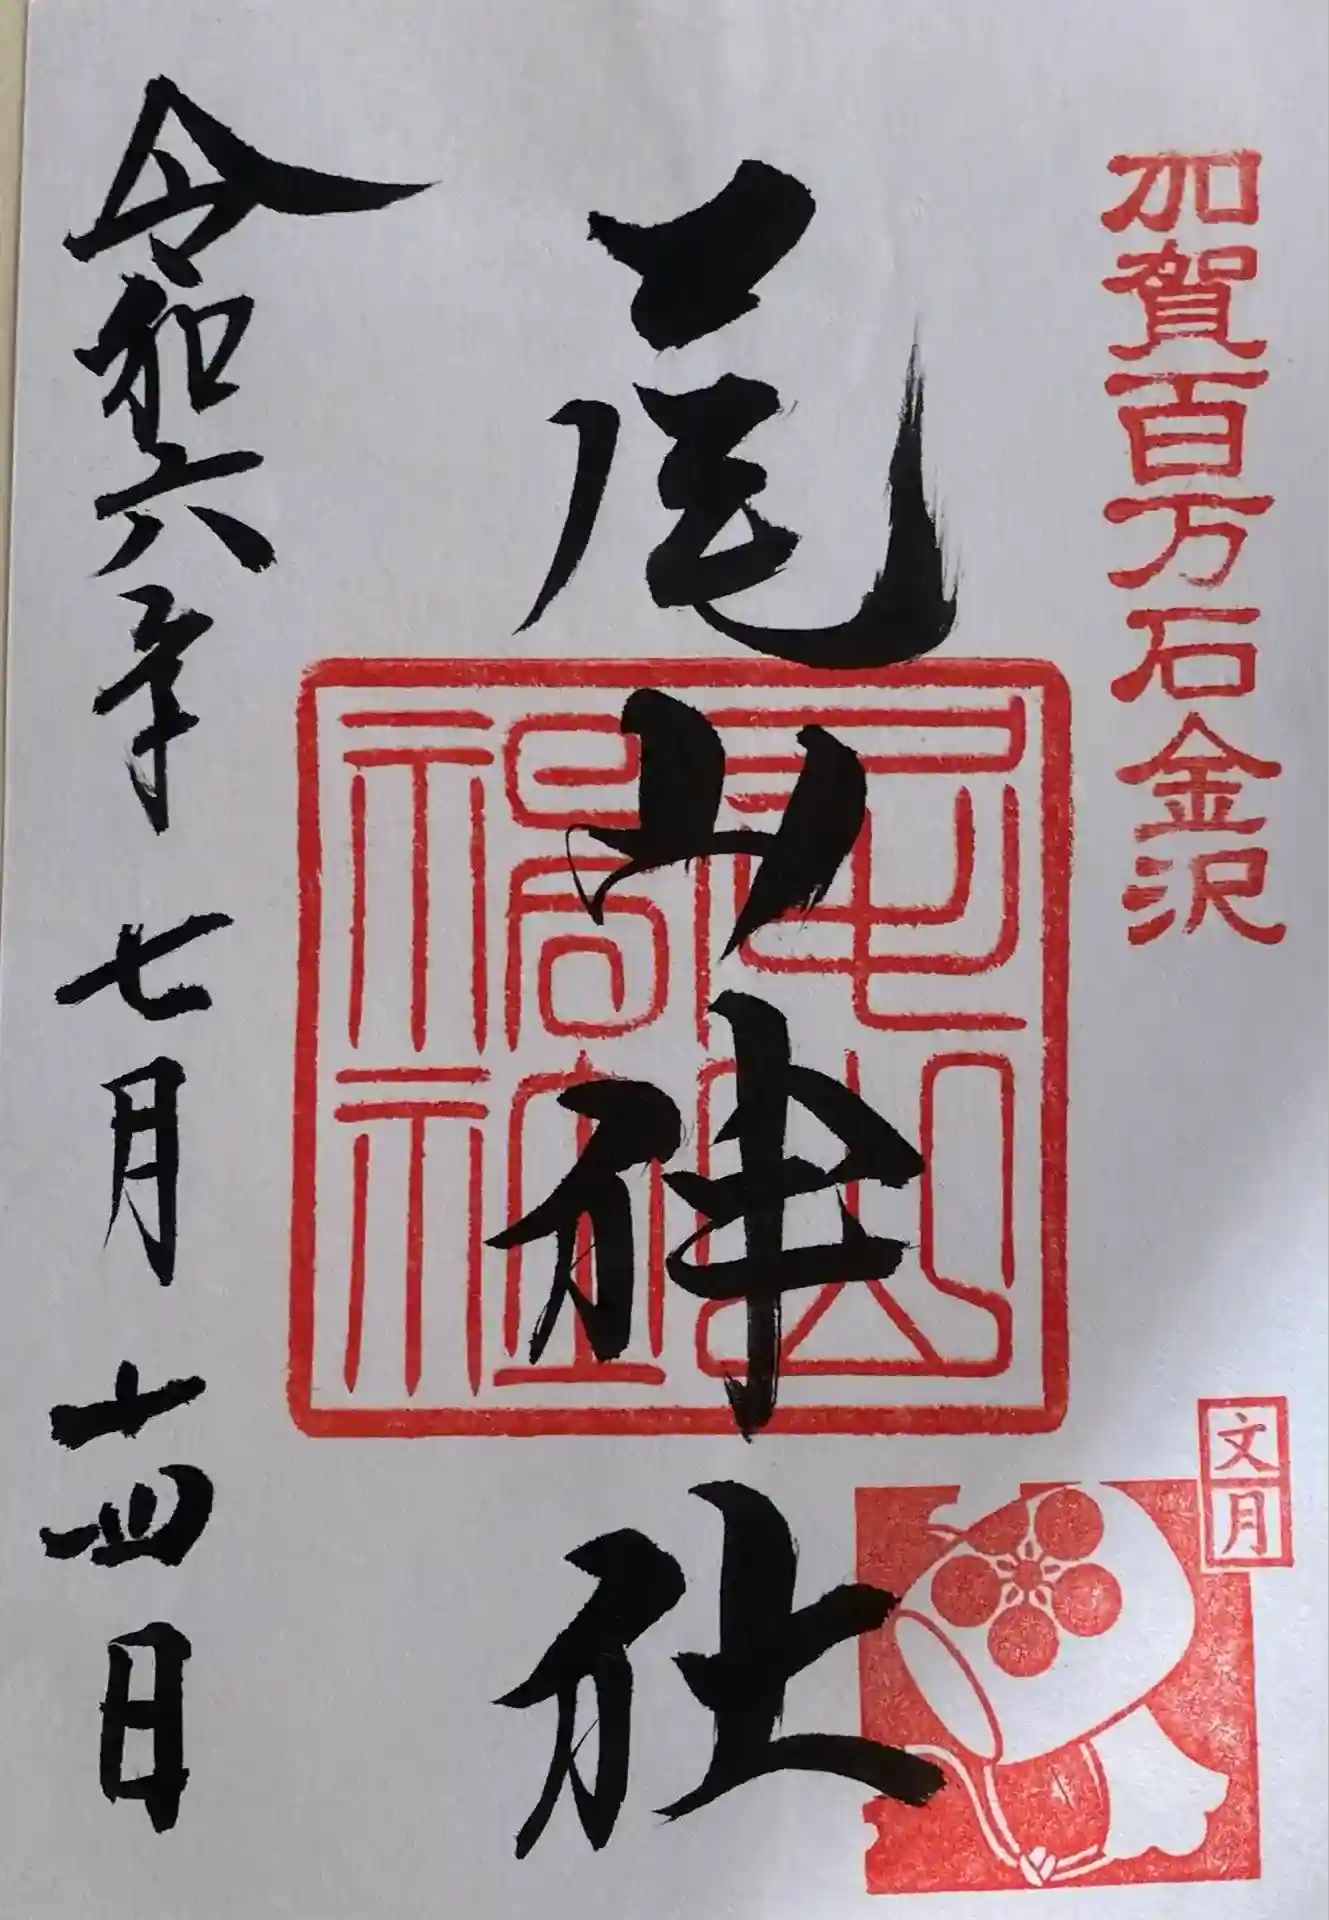 加賀百万石金沢
尾山神社
尾山神社
文月
令和六年 七月 十四日